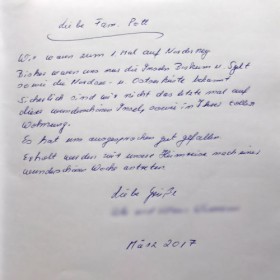 Liebe Fam. Pott
Wir waren zum 1. Mal auf Norderney
Bisher waren uns nur die Inseln Borkum u. Sylt
sowie die Nordsee- u. Ostseeküste bekannt
Sicherlich sind wir nicht das letzte mal auf
dieser wunderschönen Insel, sowie in Ihrer tollen
Wohnung.
Es hat uns ausgesprochen gut gefallen
Erholt werden wir unsere Heimreise nach einer
wunderschönen Woche antreten
Liebe Grüße
März 2017